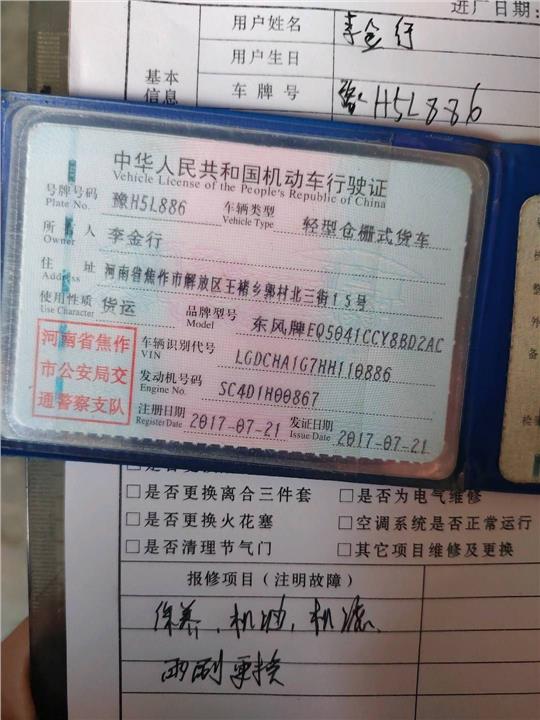 进厂日期:
用户姓名 李金行
用户生日
基本信息
车牌号 豫H5L886
中华人民共和国机动车行驶证
Vehicle License of the People's Republic of China
号牌号码 豫H5L886 车辆类型 轻型仓栅式货车
Plate No. Vehicle Type
所有人 李金行
Owner
住址 河南省焦作市解放区王褚乡郭村北三街15号
Address
使用性质 货运 品牌型号 东风牌EQ5041CCY8BD2AC
Use Character Model
河南省焦作
市公安局交
通警察支队
车辆识别代号 LGDCHA1G7HH110886
VIN
发动机号码 SC4D1H00867
Engine No.
注册日期 2017-07-21 发证日期 2017-07-21
Register Date Issue Date
□是否更换离合三件套 □是否为电气维修
□是否更换火花塞 □空调系统是否正常运行
□是否清理节气门 □其它项目维修及更换
报修项目（注明故障）
保养、机油、机滤
雨刮更换